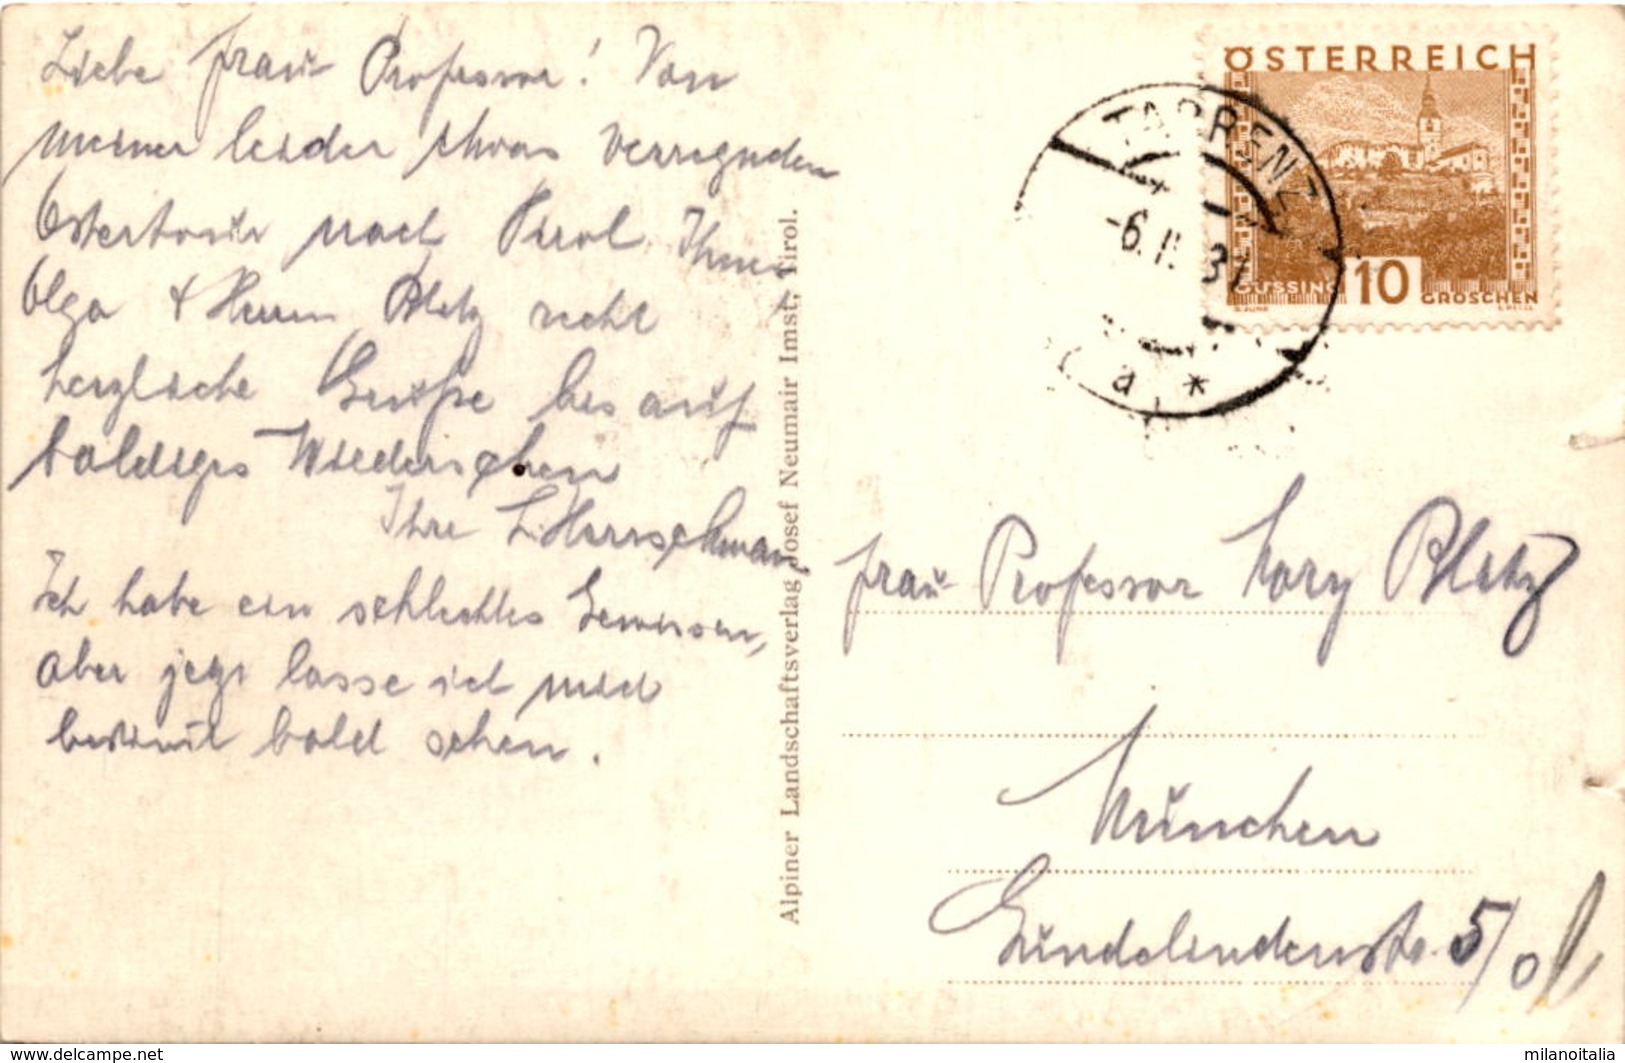 Liebe Frau Professor! Von
meiner leider etwas verregneten
Ostertour nach Tirol Ihnen
Olga & Herrn Pletz recht
herzliche Grüße bis auf
baldiges Wiedersehen
Ihre
Ich habe ein schlechtes Gewissen,
aber jetzt lasse ich mich
bestimmt bald sehen.
Alpiner Landschaftsverlag Josef Neumair Imst, Tirol.
ÖSTERREICH
GÜSSING 10 GROSCHEN
TARRENZ
a *
Frau Professor Pletz
München
Gündelindenstr. 5/0
www.delcampe.net
milanoitalia